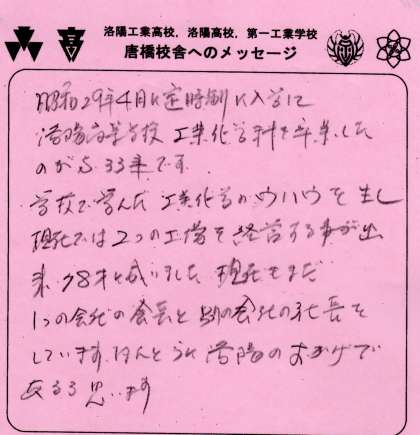 洛陽工業高校，洛陽高校，第一工業学校
唐橋校舎へのメッセージ
昭和29年4月に定時制に入学し
洛陽高等学校 工業化学科を卒業した
のがS.33年です。
学校で学んだ工業化学のノウハウを生し
現在では2つの工場を経営する事が出
来、78才と成りました 現在もまだ
1つの会社の会長と別の会社の社長を
しています。ほんとうに洛陽のおかげで
あると思います